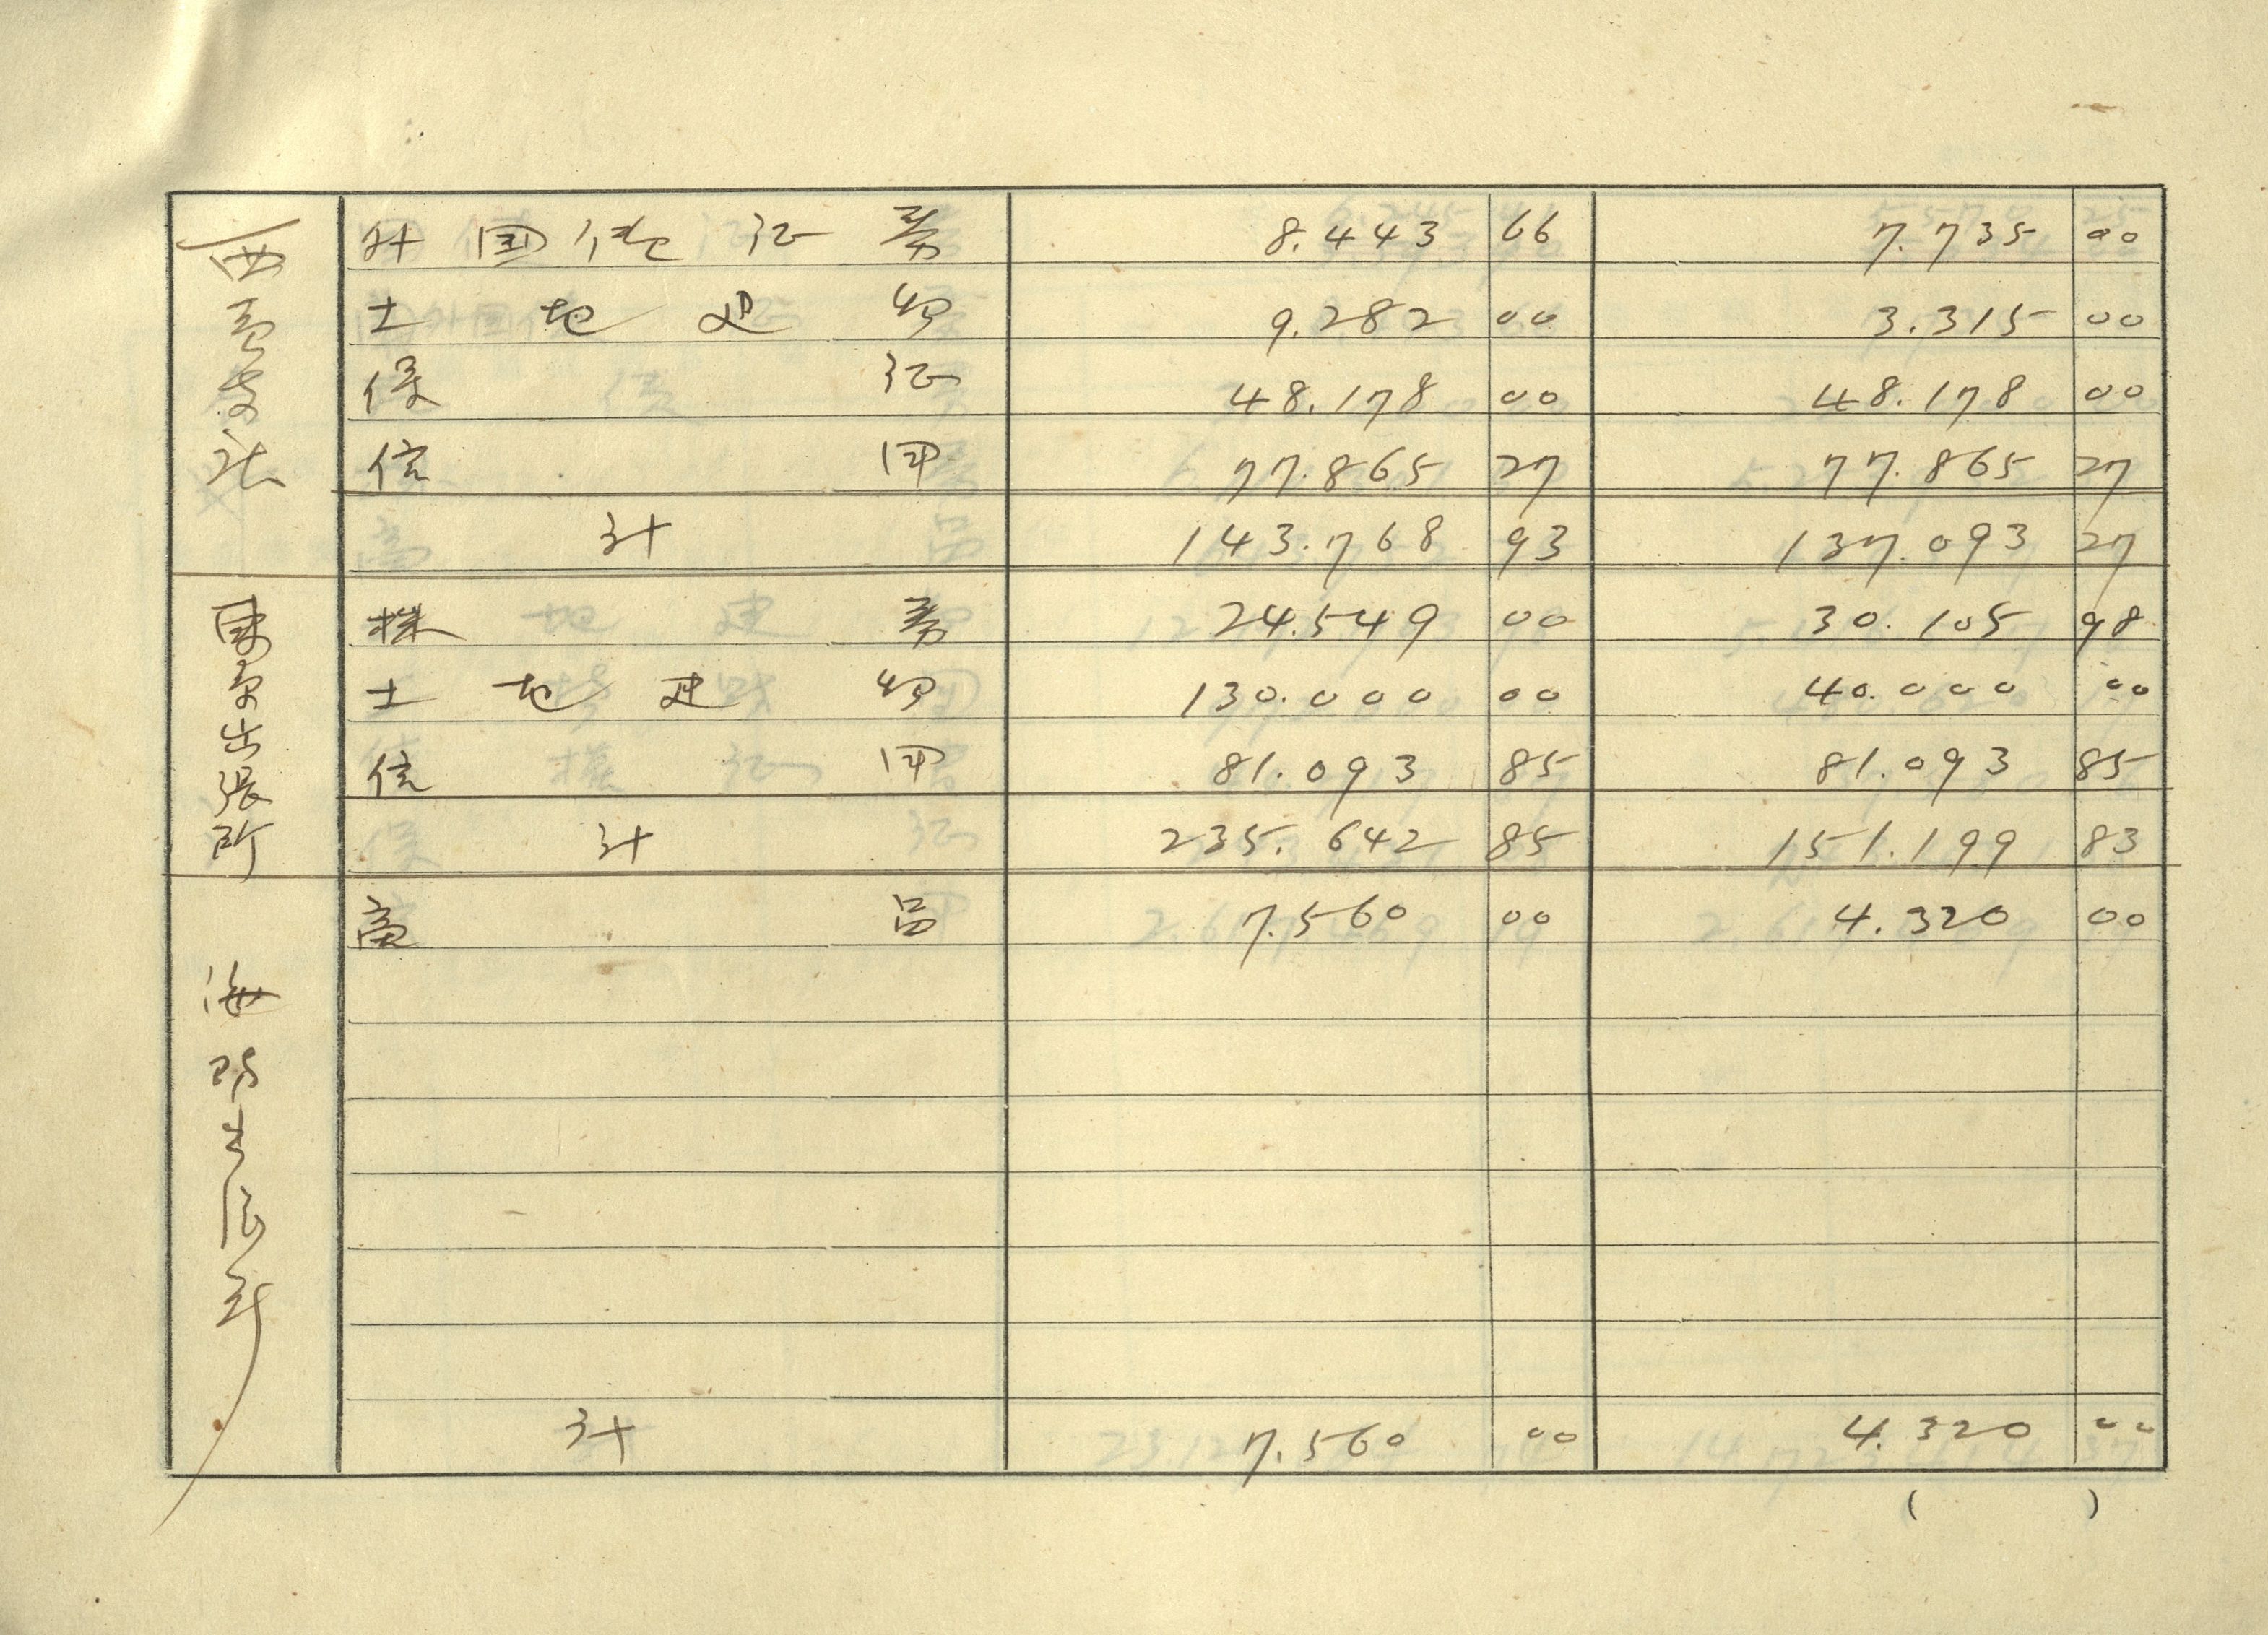 西貢支社
外国債証券 8.443 66 7.735 00
土地建物 9.282 00 3.315 00
保証 48.178 00 48.178 00
信用 77.865 27 77.865 27
計 143.768 93 137.093 27
出張所
株券 24.549 00 30.105 98
土地建物 130.000 00 40.000 00
信用 81.093 85 81.093 85
計 235.642 85 151.199 83
海防出張所
商品 7.560 00 4.320 00
計 7.560 00 4.320 00
( )